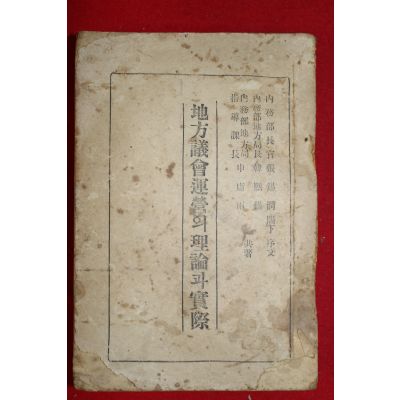 內務部長官張錫潤閣下序文
內務部地方局長韓熙錫
內務部地方局
指導課長
申庸雨
共著
地方議會運營의理論과實際